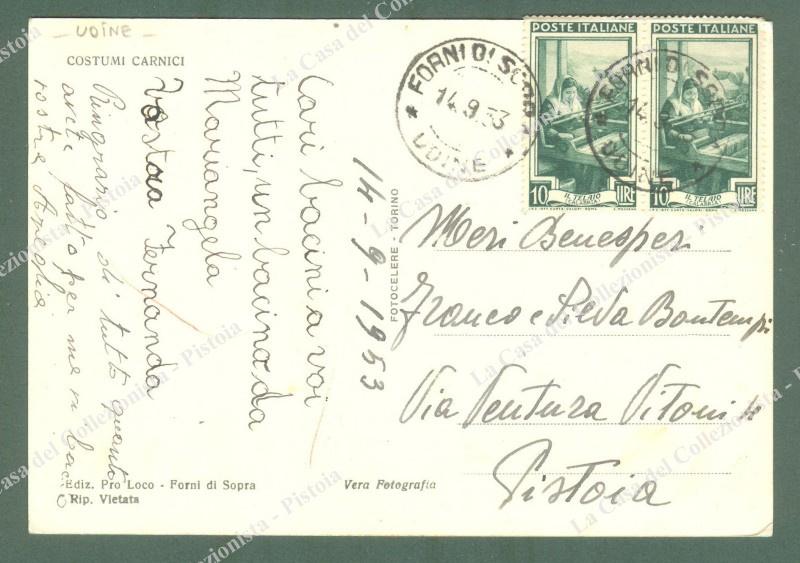 - UDINE -
COSTUMI CARNICI
Cari bacini a voi
tutti, un bacino da
Mariangela
Fernanda
Ringrazio di tutto quanto
avete fatto per me
14-9-1953
FORNI DI SOPRA
14.9.53
UDINE
FORNI DI SOPRA
14.9.
UDINE
POSTE ITALIANE
POSTE ITALIANE
10 IL TELAIO LIRE
10 IL TELAIO LIRE
Meri Benesperi
Franco e Bontempi
Via Ventura Vitoni
Pistoia
FOTOCELERE - TORINO
Ediz. Pro Loco - Forni di Sopra
Rip. Vietata
Vera Fotografia
La Casa del Collezionista - Pistoia